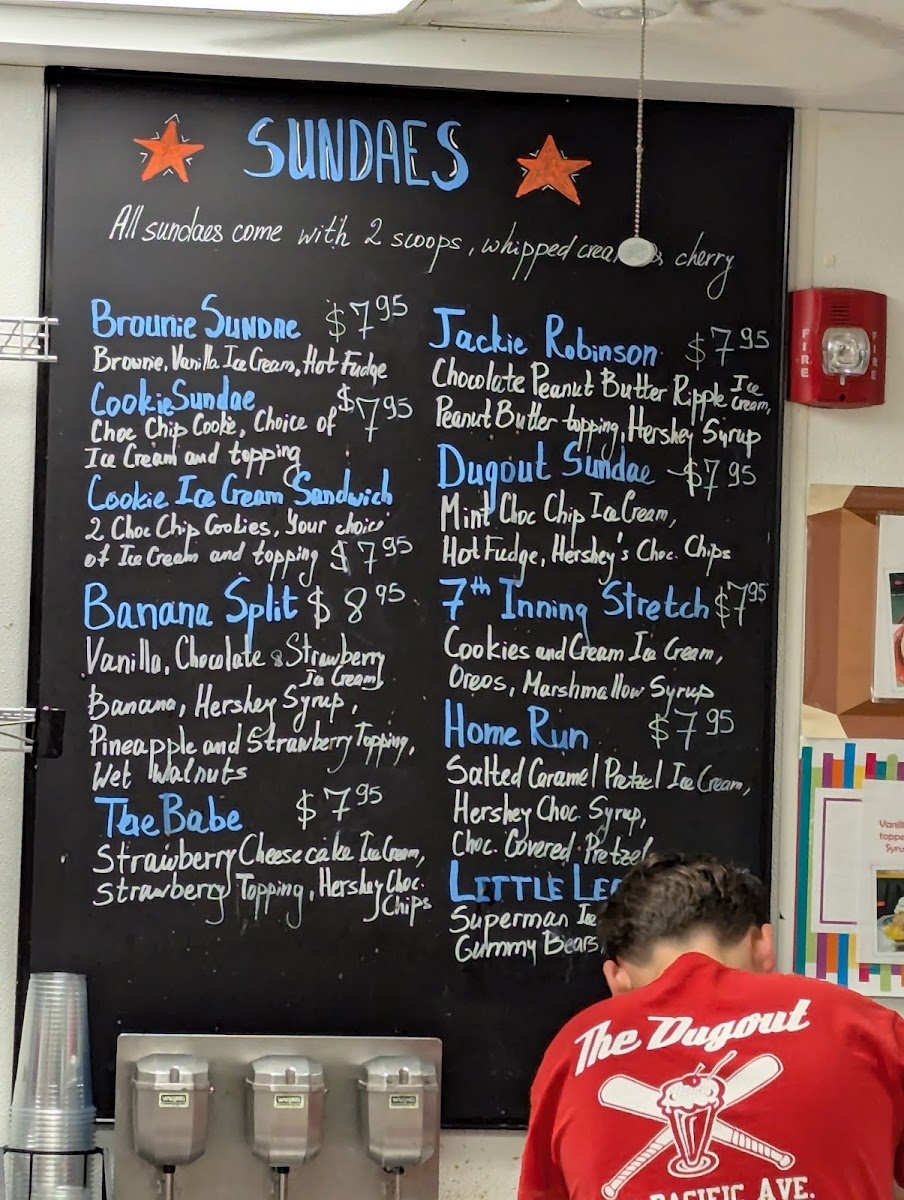 SUNDAES
All sundaes come with 2 scoops, whipped cherry
Brownie Sundae $7.95
Brownie, Vanilla Ice Cream, Hot Fudge
Cookie Sundae $7.95
Choc Chip Cookie, Choice of
Ice Cream and topping
Cookie Ice Cream Sandwich
2 Choc Chip Cookies, Your choice
of Ice Cream and topping $7.95
Banana Split $8.95
Vanilla, Chocolate & Strawberry
Ice Cream,
Banana, Hershey Syrup,
Pineapple and Strawberry Topping,
Wet Walnuts
The Babe $7.95
Strawberry Cheesecake Ice Cream,
Strawberry Topping, Hershey Choc.
Chips
Jackie Robinson $7.95
Chocolate Peanut Butter Ripple Ice
Cream,
Peanut Butter topping, Hershey Syrup
Dugout Sundae $7.95
Mint Choc Chip Ice Cream,
Hot Fudge, Hershey's Choc. Chips
7th Inning Stretch $7.95
Cookies and Cream Ice Cream,
Oreos, Marshmallow Syrup
Home Run $7.95
Salted Caramel Pretzel Ice Cream,
Hershey Choc. Syrup,
Choc. Covered Pretzel
LITTLE
Superman Ice
Gummy Bears,
FIRE
FIRE
The Dugout
PACIFIC AVE.